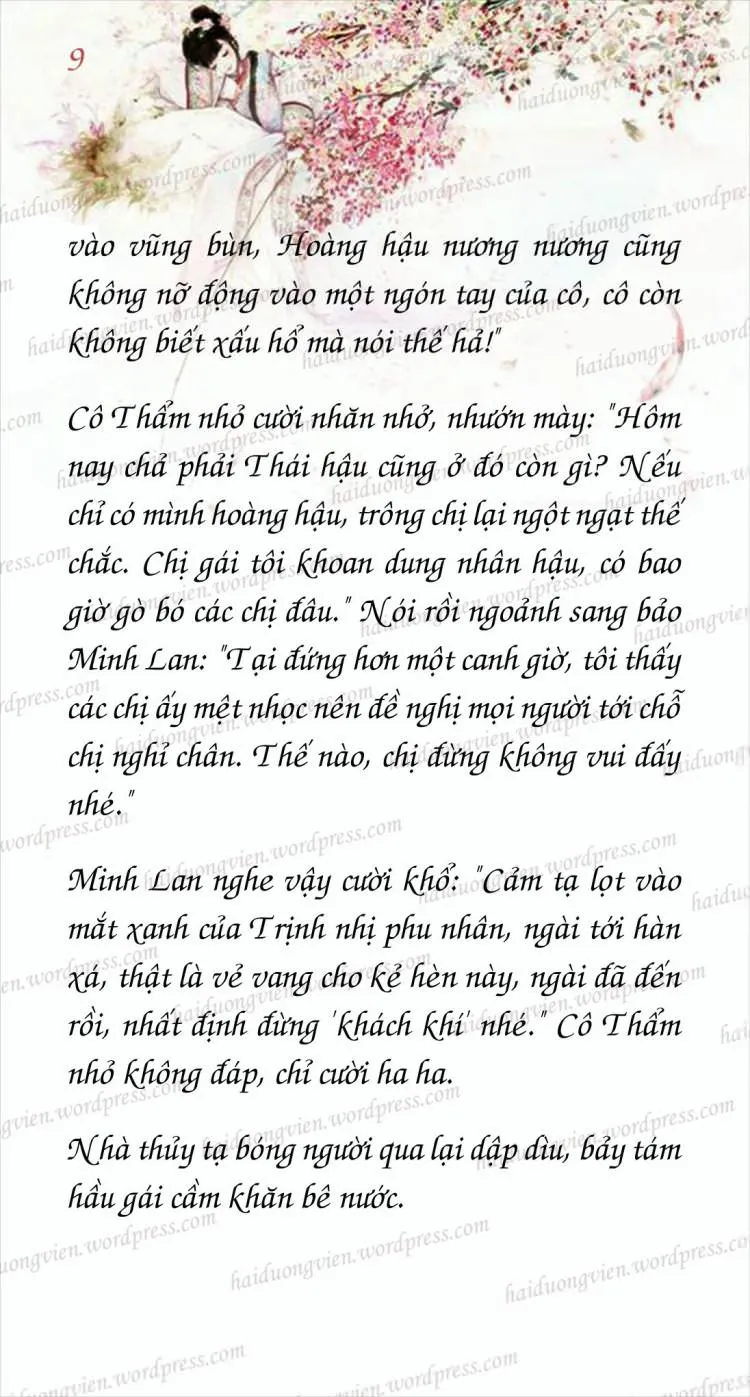 9
vào vũng bùn, Hoàng hậu nương nương cũng
không nỡ động vào một ngón tay của cô, cô còn
không biết xấu hổ mà nói thế hả!"
Cô Thẩm nhỏ cười nhăn nhở, nhướn mày: "Hôm
nay chả phải Thái hậu cũng ở đó còn gì? Nếu
chỉ có mình hoàng hậu, trông chị lại ngột ngạt thế
chắc. Chị gái tôi khoan dung nhân hậu, có bao
giờ gò bó các chị đâu." Nói rồi ngoảnh sang bảo
Minh Lan: "Tại đứng hơn một canh giờ, tôi thấy
các chị ấy mệt nhọc nên đề nghị mọi người tới chỗ
chị nghỉ chân. Thế nào, chị đừng không vui đấy
nhé."
Minh Lan nghe vậy cười khổ: "Cảm tạ lọt vào
mắt xanh của Trịnh nhị phu nhân, ngài tới hàn
xá, thật là vẻ vang cho kẻ hèn này, ngài đã đến
rồi, nhất định đừng 'khách khí' nhé." Cô Thẩm
nhỏ không đáp, chỉ cười ha ha.
Nhà thủy tạ bóng người qua lại dập dìu, bảy tám
hầu gái cầm khăn bê nước.
haiduongvien.wordpress.com